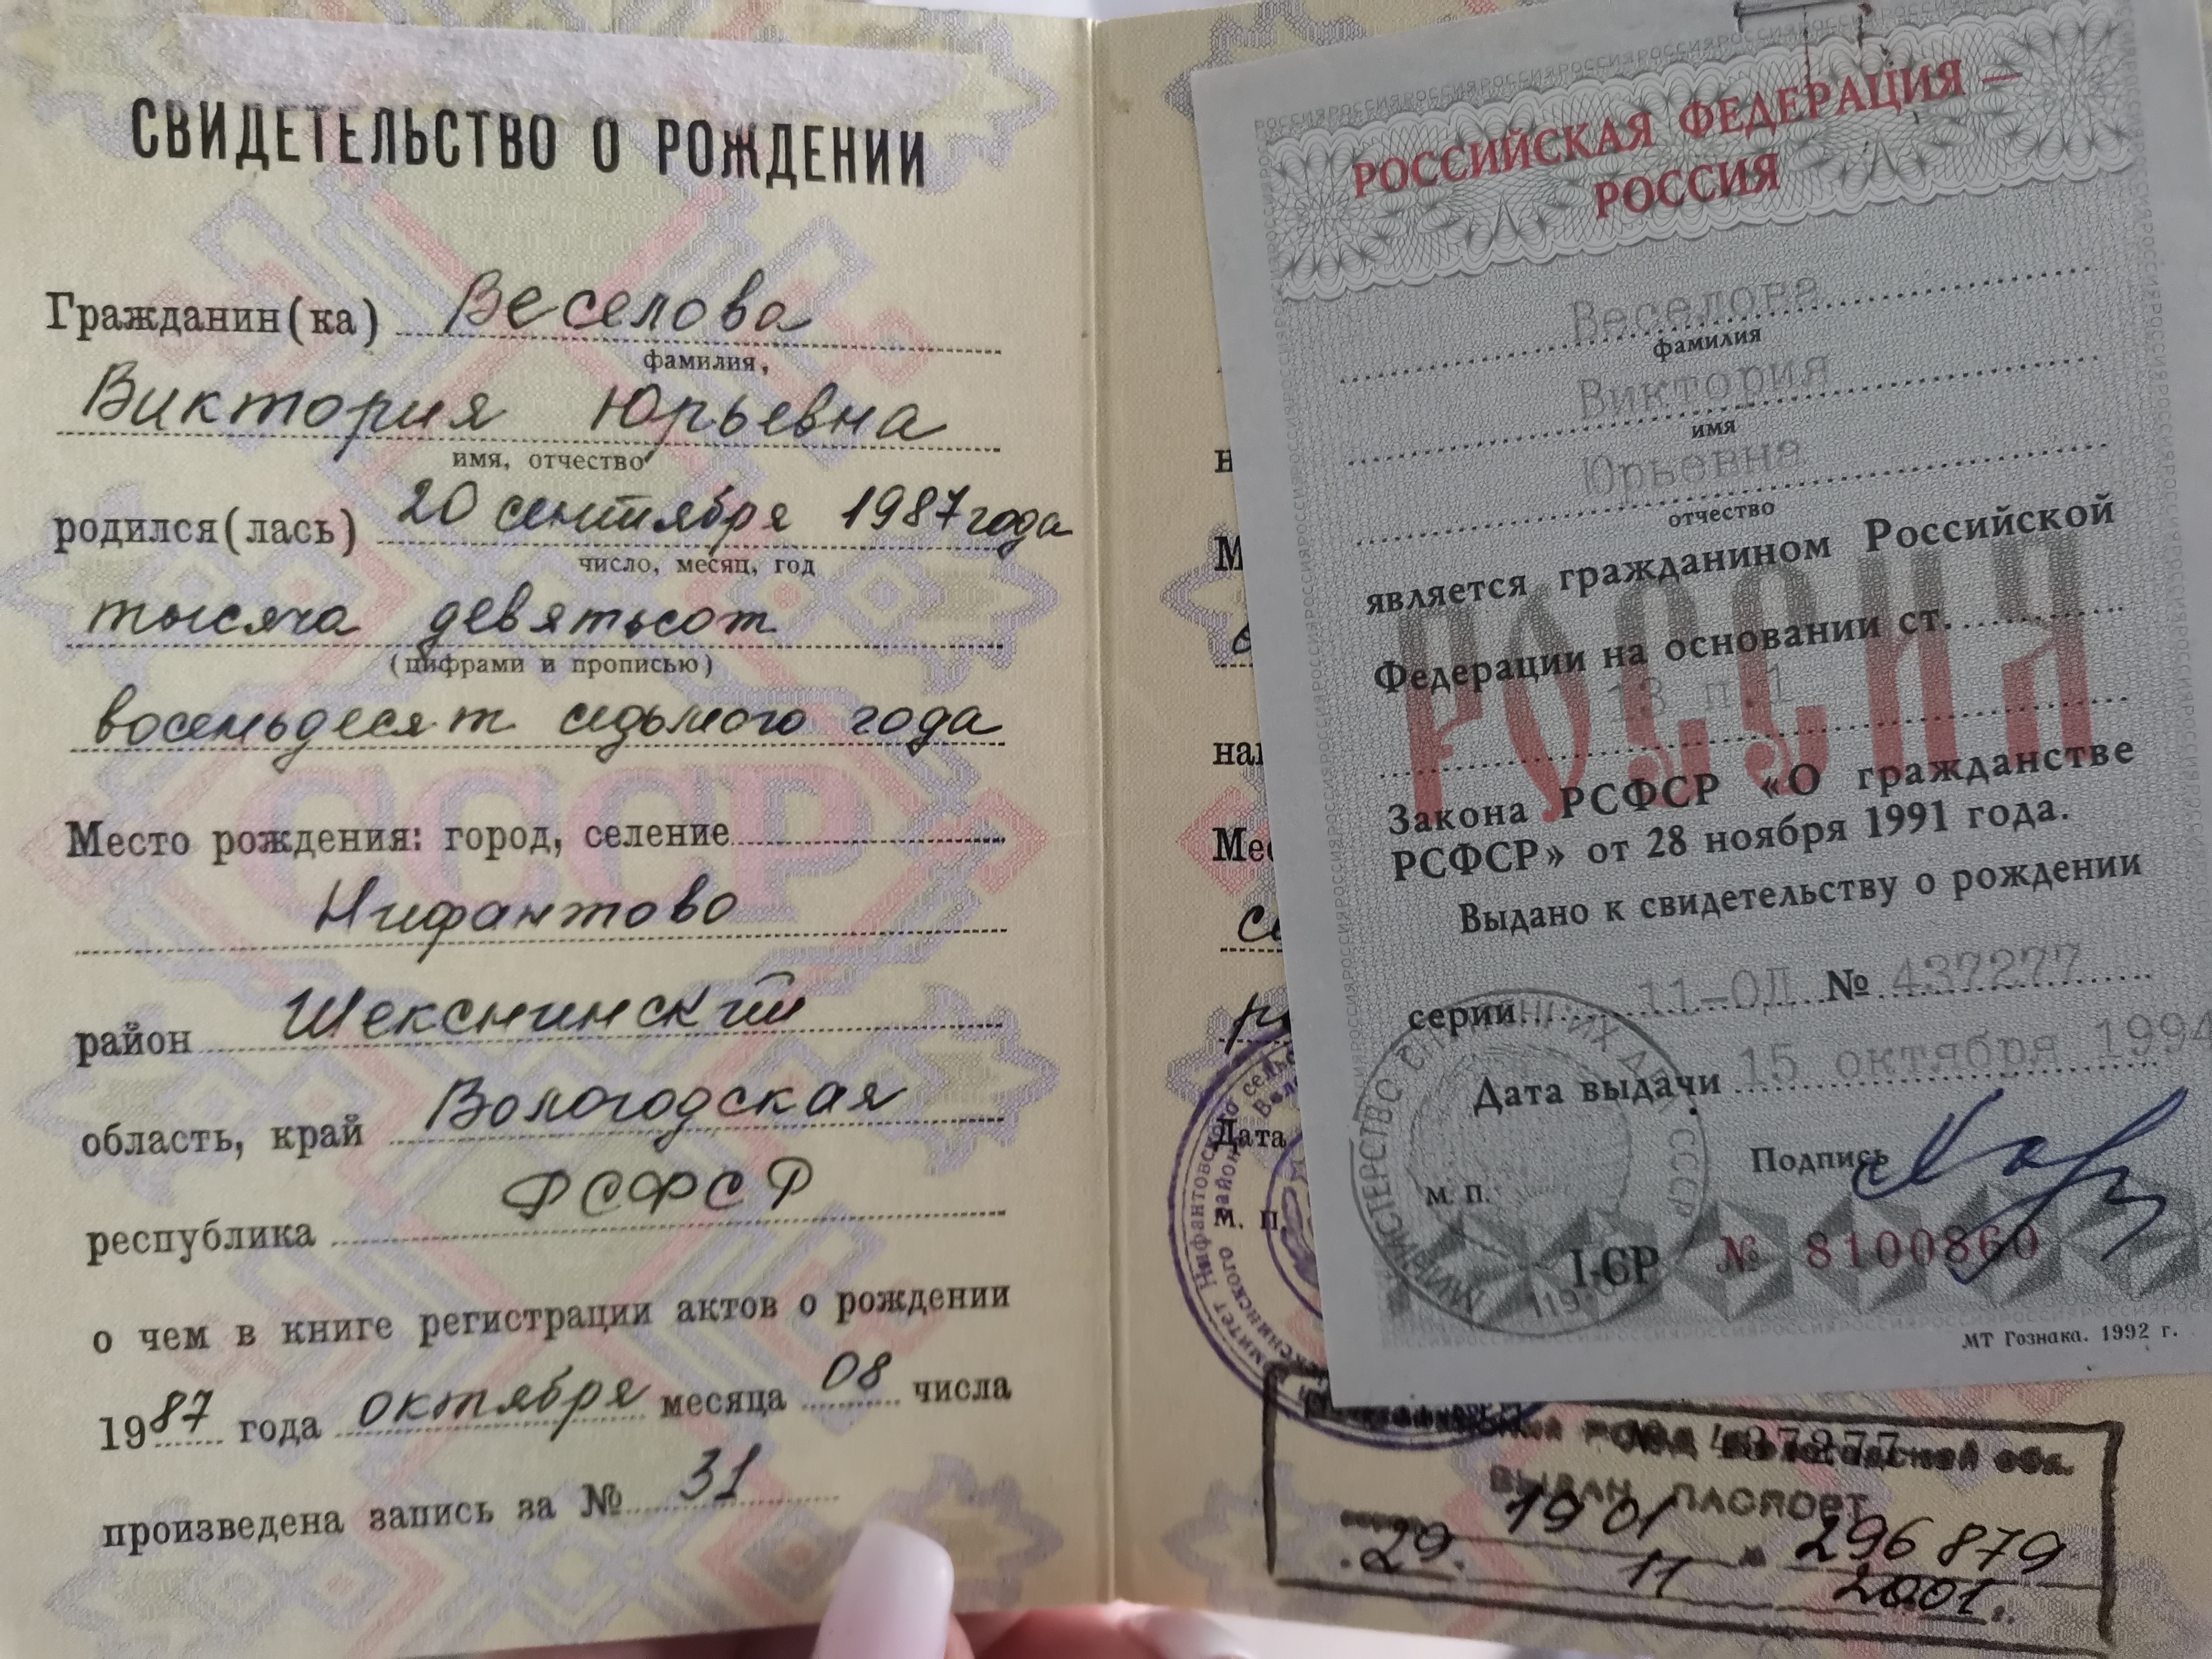 СВИДЕТЕЛЬСТВО О РОЖДЕНИИ
Гражданин(ка) Веселова
фамилия,
Виктория Юрьевна
имя, отчество
родился(лась) 20 сентября 1987 года
число, месяц, год
тысяча девятьсот
(цифрами и прописью)
восемьдесят седьмого года
Место рождения: город, селение
Нифантово
район Шекснинский
область, край Вологодская
республика РСФСР
о чем в книге регистрации актов о рождении
1987 года октября месяца 08 числа
произведена запись за № 31
РОССИЙСКАЯ ФЕДЕРАЦИЯ —
РОССИЯ
Веселова
фамилия
Виктория
имя
Юрьевна
отчество
является гражданином Российской
Федерации на основании ст.
13 п.1
РОССИЯ
Закона РСФСР «О гражданстве
РСФСР» от 28 ноября 1991 года.
Выдано к свидетельству о рождении
серии 11-ОД № 437277
Дата выдачи 15 октября 1994
Подпись
М. П.
I-СР № 8100860
МТ Гознака. 1992 г.
Дата
М. П.
437277
РОВД Вологодской обл.
ВЫДАН ПАСПОРТ
19 01 № 296879
29. 11 2001.